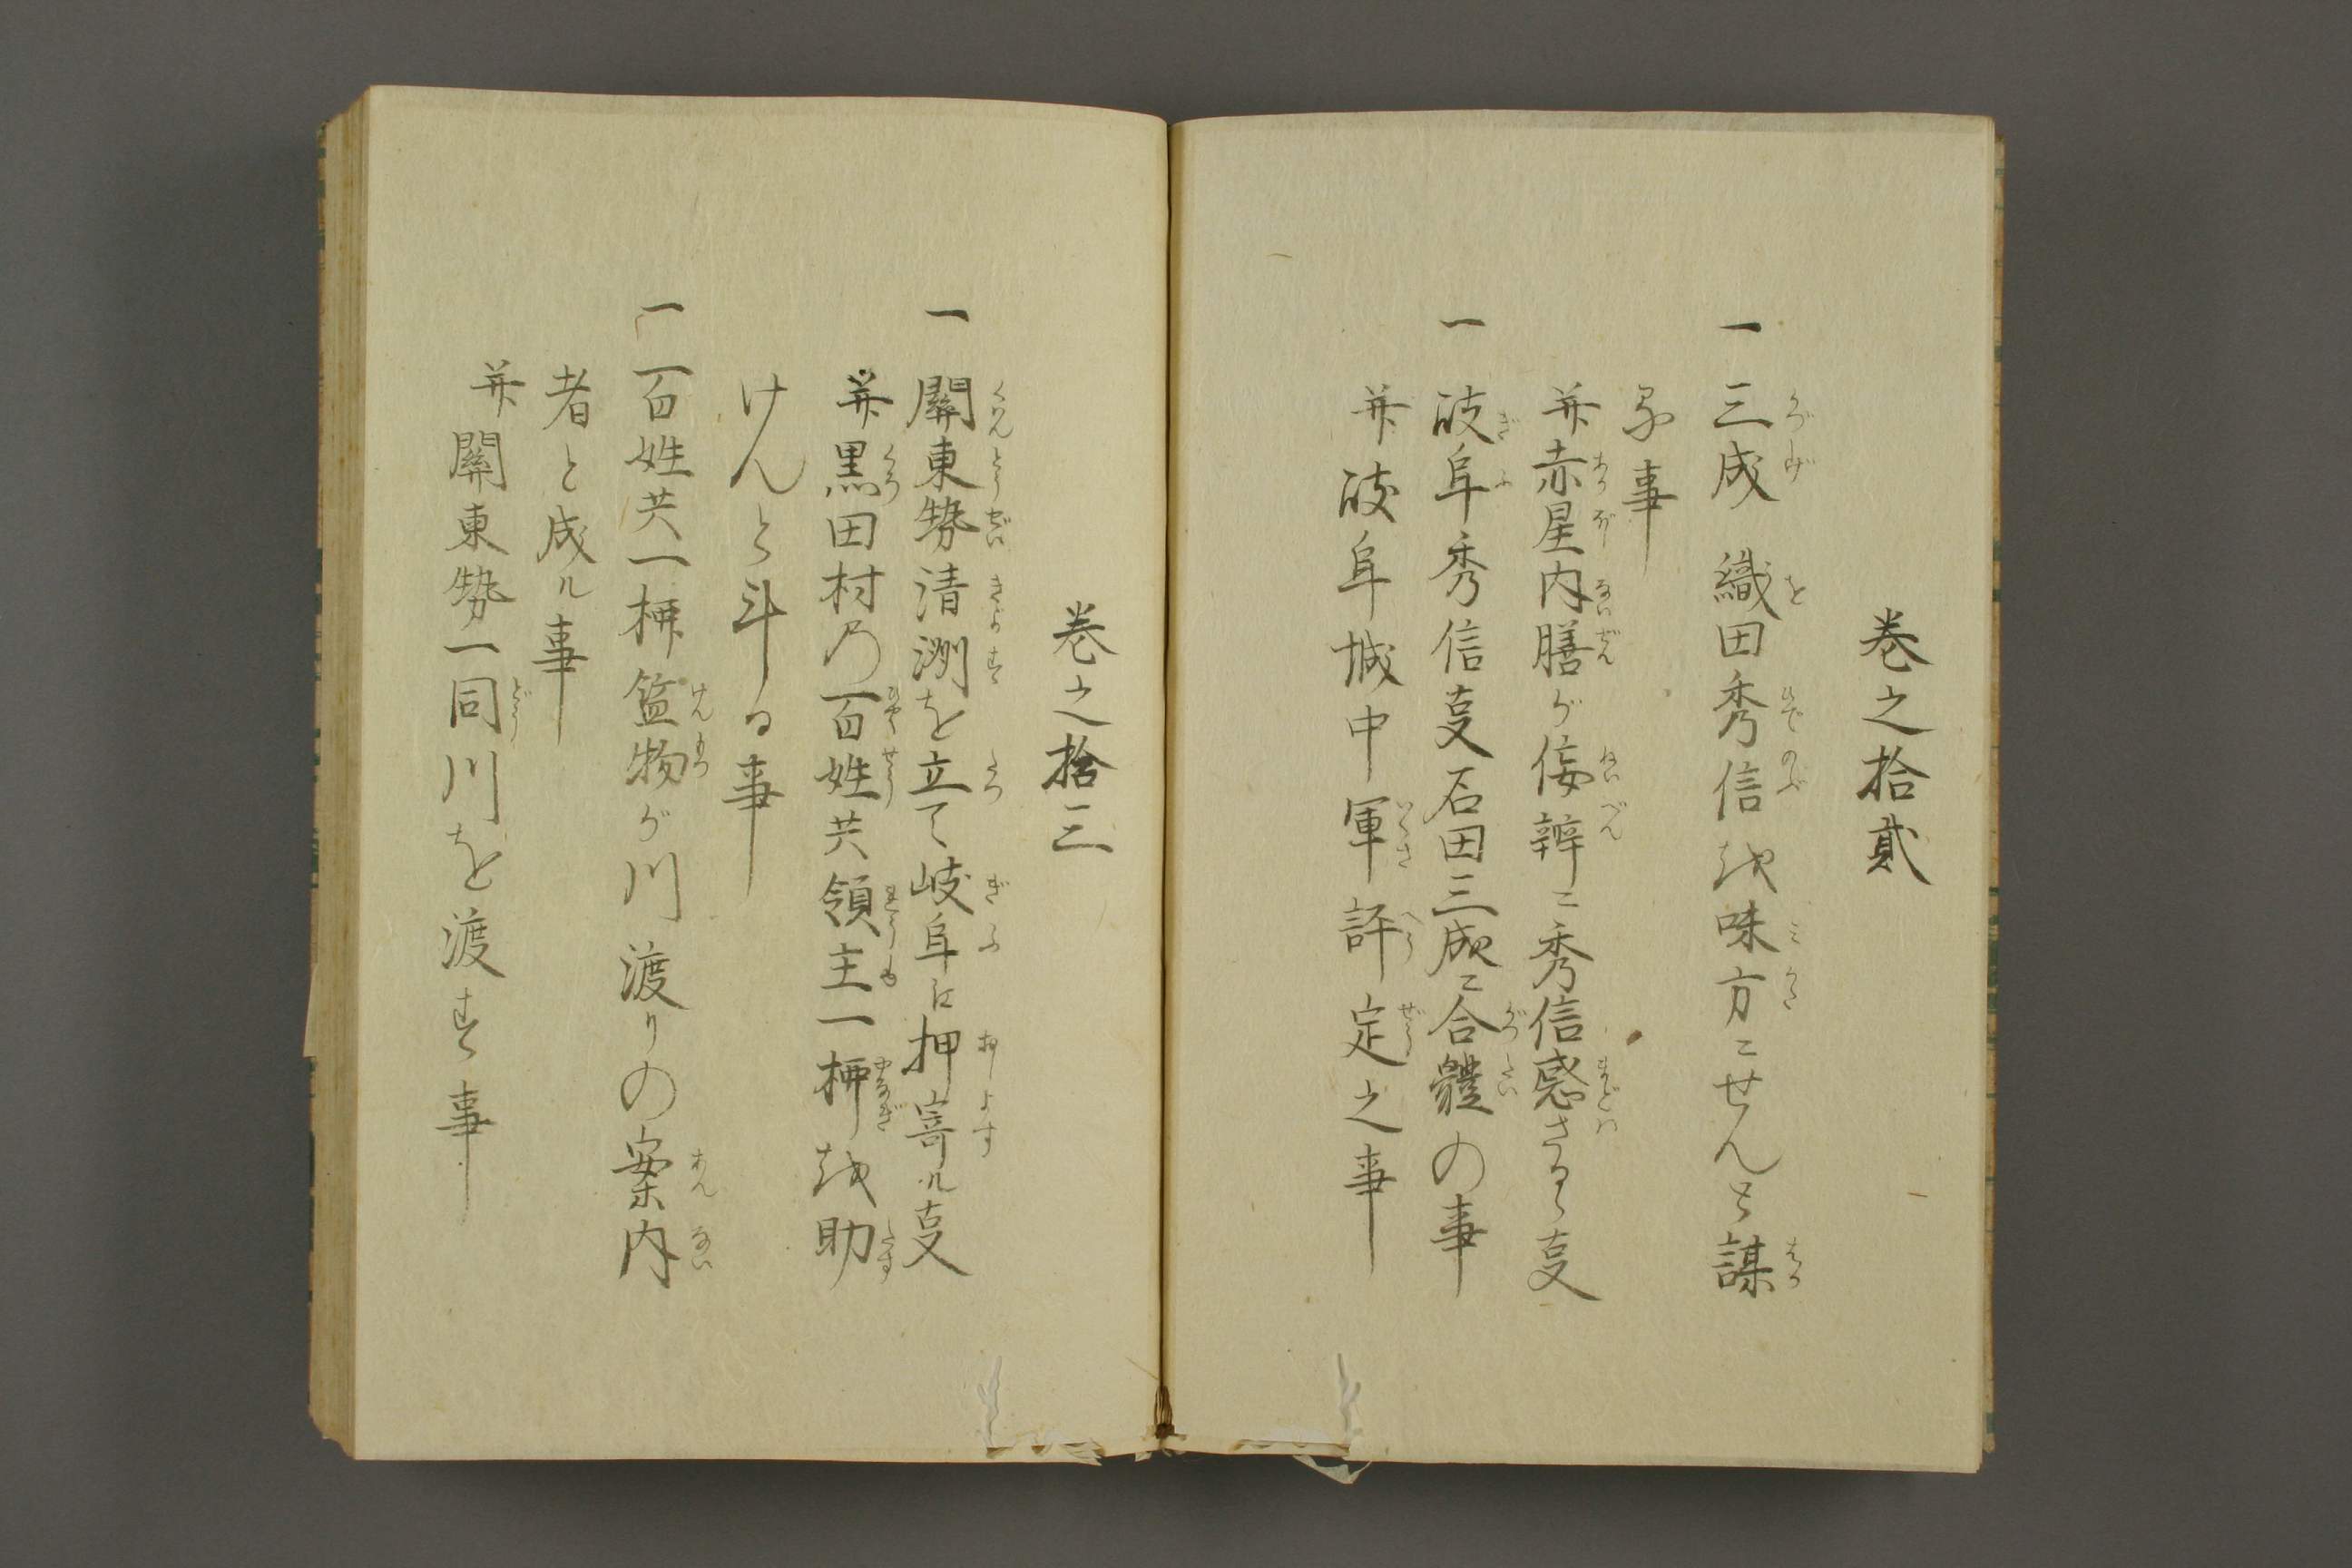 巻之拾貳
一 三成 織田秀信越味方ニせんと謀
る事
并赤星内膳が侫辨ニ秀信惑さるゝ㕝
一 岐阜秀信㕝石田三成ニ合體の事
并岐阜城中軍評定之事
巻之拾三
一 關東勢清洲を立て岐阜江押寄ル㕝
并黒田村乃百姓共領主一柳越助
けんと斗る事
一 百姓共一柳監物が川渡りの案内
者と成ル事
并關東勢一同川を渡す事